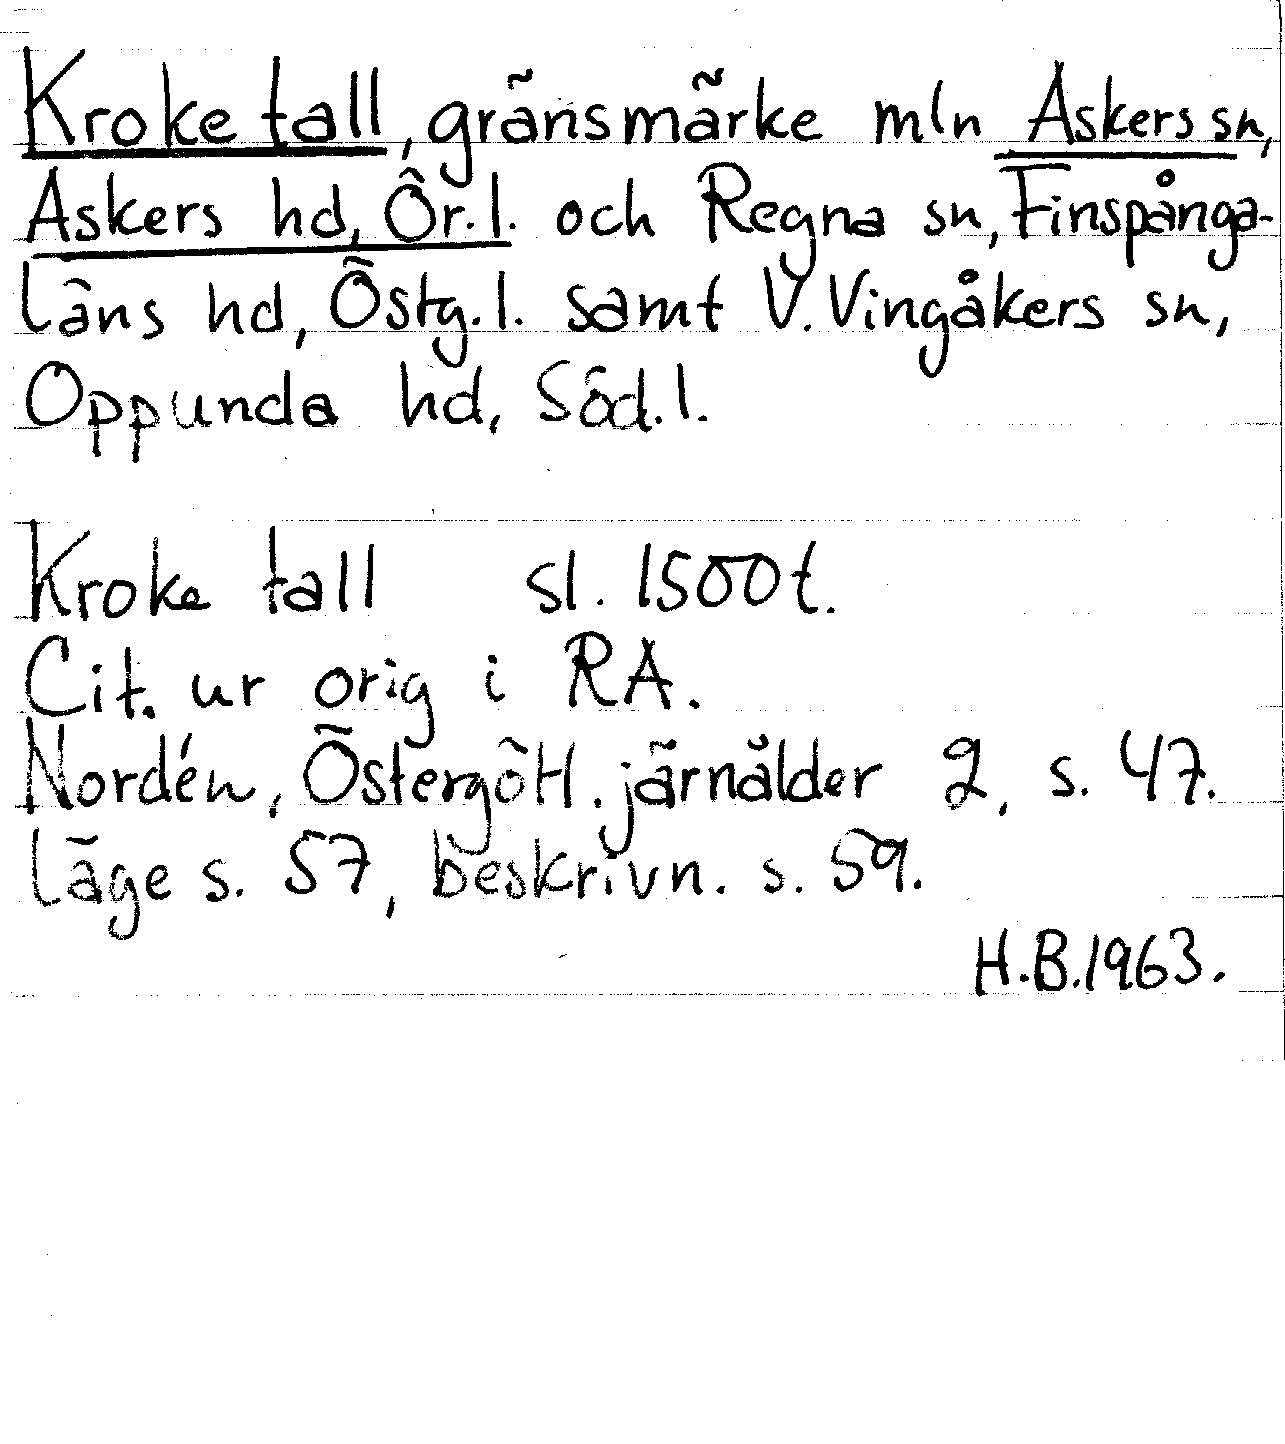 Kroke tall, gränsmärke mln Askers sn,
Askers hd, Ör.l. och Regna sn, Finspånga-
läns hd, Östg.l. samt V. Vingåkers sn,
Oppunda hd, Söd.l.
Kroke tall sl. 1500t.
Cit. ur orig i RA.
Nordén, Östergötl. järnålder 2, s. 47.
Läge s. 57, beskrivn. s. 59.
H.B.1963.